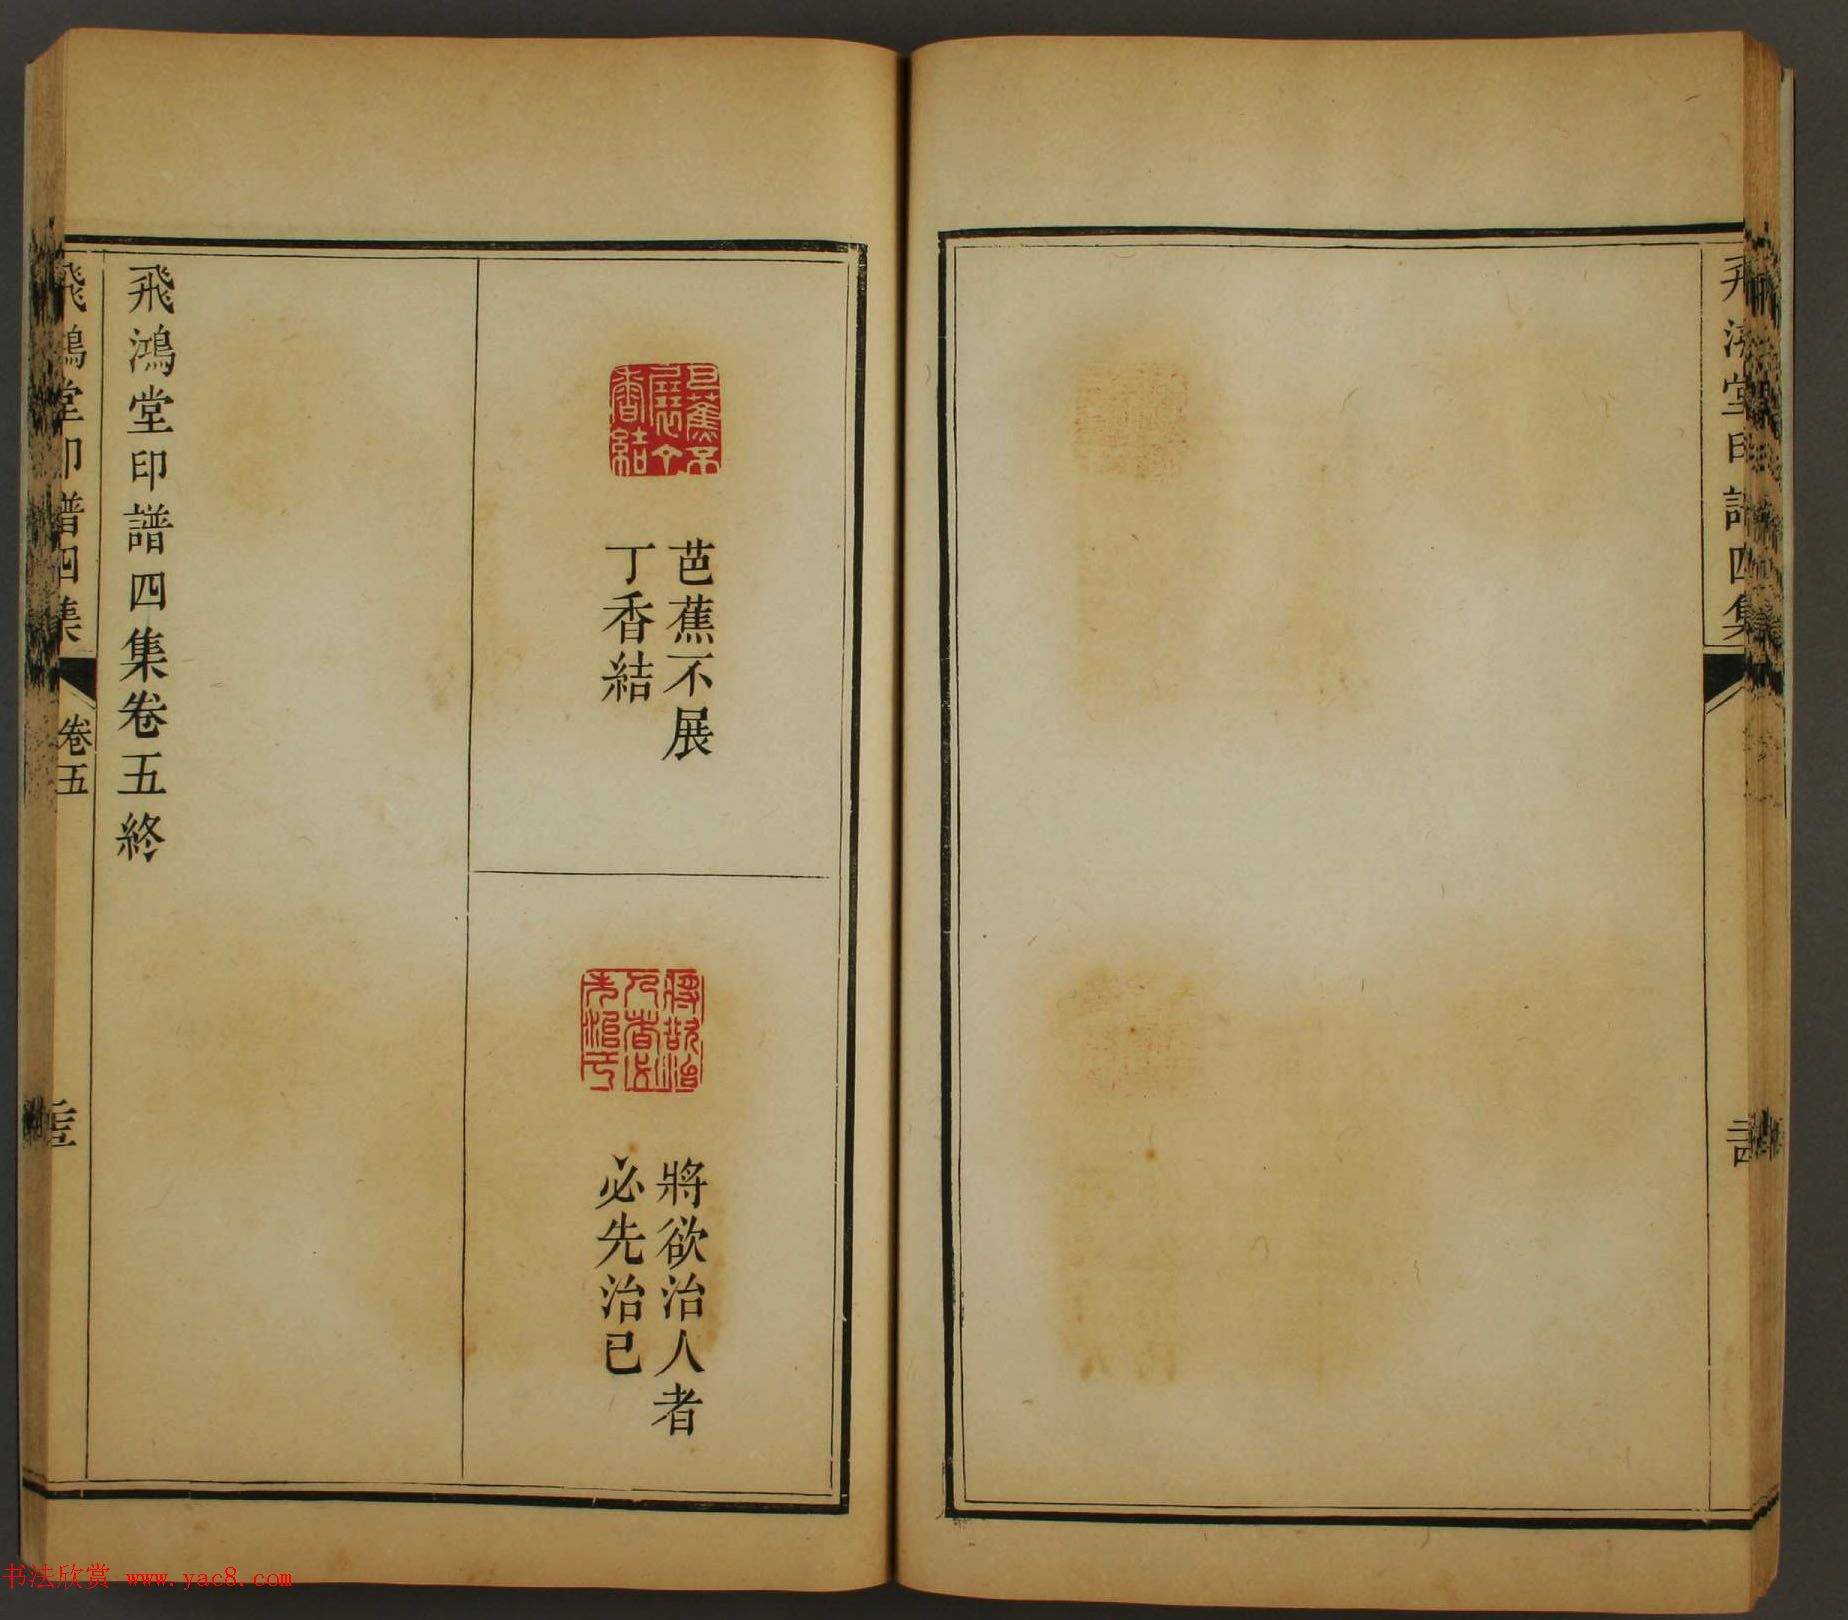 飛鴻堂印譜四集
芭蕉不展
丁香結
將欲治人者
必先治已
飛鴻堂印譜四集卷五終
飛鴻堂印譜四集
卷五
书法欣赏 www.yac8.com